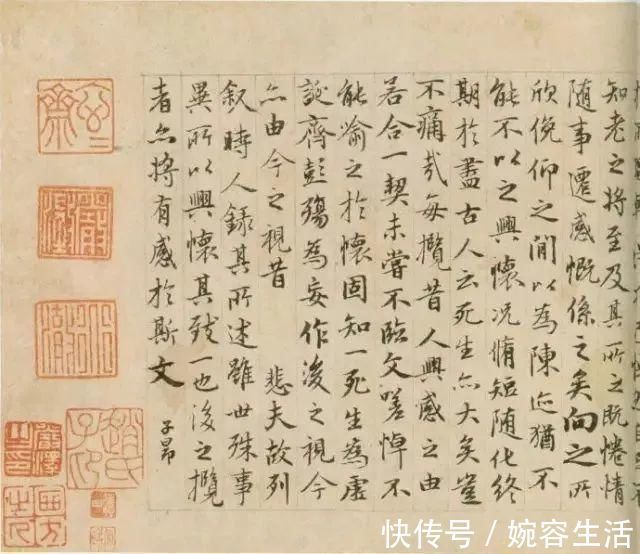 知老之將至及其所之既惓情
隨事遷感慨係之矣向之所
欣俛仰之閒以為陳迹猶不
能不以之興懷況脩短隨化終
期於盡古人云死生亦大矣豈
不痛哉每攬昔人興感之由
若合一契未嘗不臨文嗟悼不
能喻之於懷固知一死生為虛
誕齊彭殤為妄作後之視今
亦由今之視昔 悲夫故列
叙時人錄其所述雖世殊事
異所以興懷其致一也後之攬
者亦將有感於斯文
子昂
趙氏子昂
快传号/婉容生活